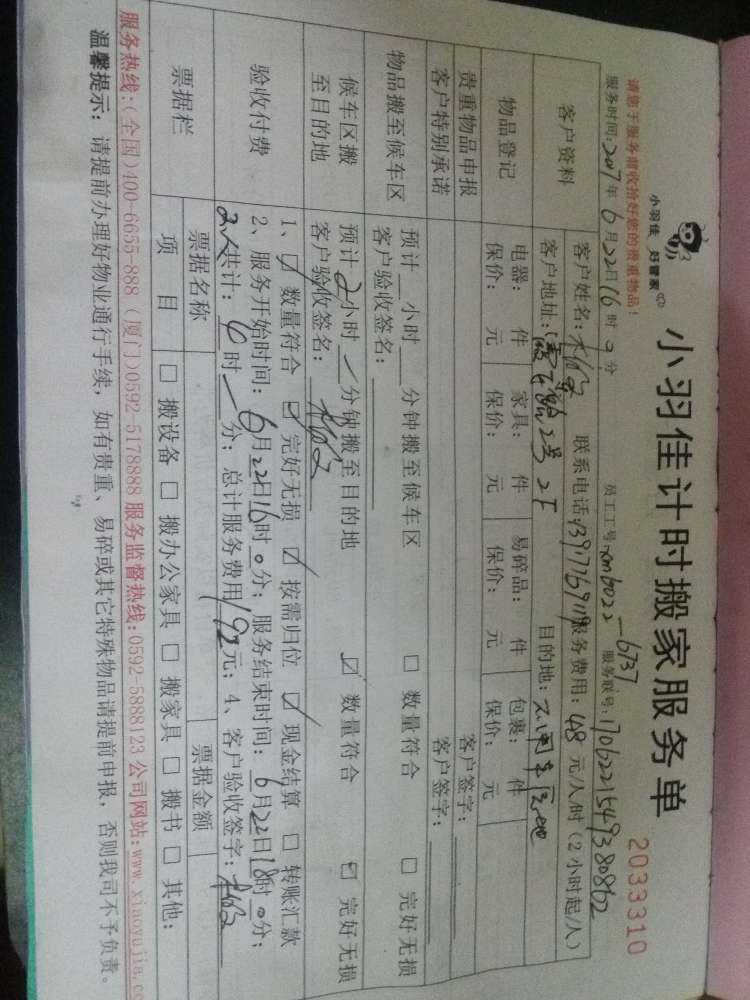 请您于服务前收拾好您的贵重物品！
小羽佳 好管家
小羽佳计时搬家服务单
2033310
服务时间：2017年6月22日16时0分
员工工号：xm6022-6737
服务联号：1706221549380862
客户资料
客户姓名： 联系电话：13977697118 服务费用：48元/人/时（2小时起/人）
客户地址： 2号2F 目的地：
物品登记
电器： 件 家具： 件 易碎品： 件 包裹： 件
保价： 元 保价： 元 保价： 元 保价： 元
贵重物品申报 客户签字：
客户特别承诺 客户签字：
物品搬至候车区
预计 小时 分钟搬至候车区 □ 数量符合 □ 完好无损
客户验收签名：
候车区搬至目的地
预计2小时／分钟搬至目的地 ☑ 数量符合 ☑ 完好无损
客户验收签名：
验收付费
1、☑ 数量符合 ☑ 完好无损 ☑ 按需归位 ☑ 现金结算 □ 转账汇款
2、服务开始时间：6月22日16时0分；服务结束时间：6月22日18时0分；
2人共计：4时／分；总计服务费用192元；4、客户验收签字：
票据栏
票据名称 票据金额
项目 □ 搬设备 □ 搬办公家具 □ 搬家具 □ 搬书 □ 其他：
服务热线：（全国）400-6655-888（厦门）0592-5178888 服务监督热线：0592-5888123 公司网站：www.xiaoyujia.co
温馨提示：请提前办理好物业通行手续，如有贵重、易碎或其它特殊物品请提前申报，否则我司不予负责。